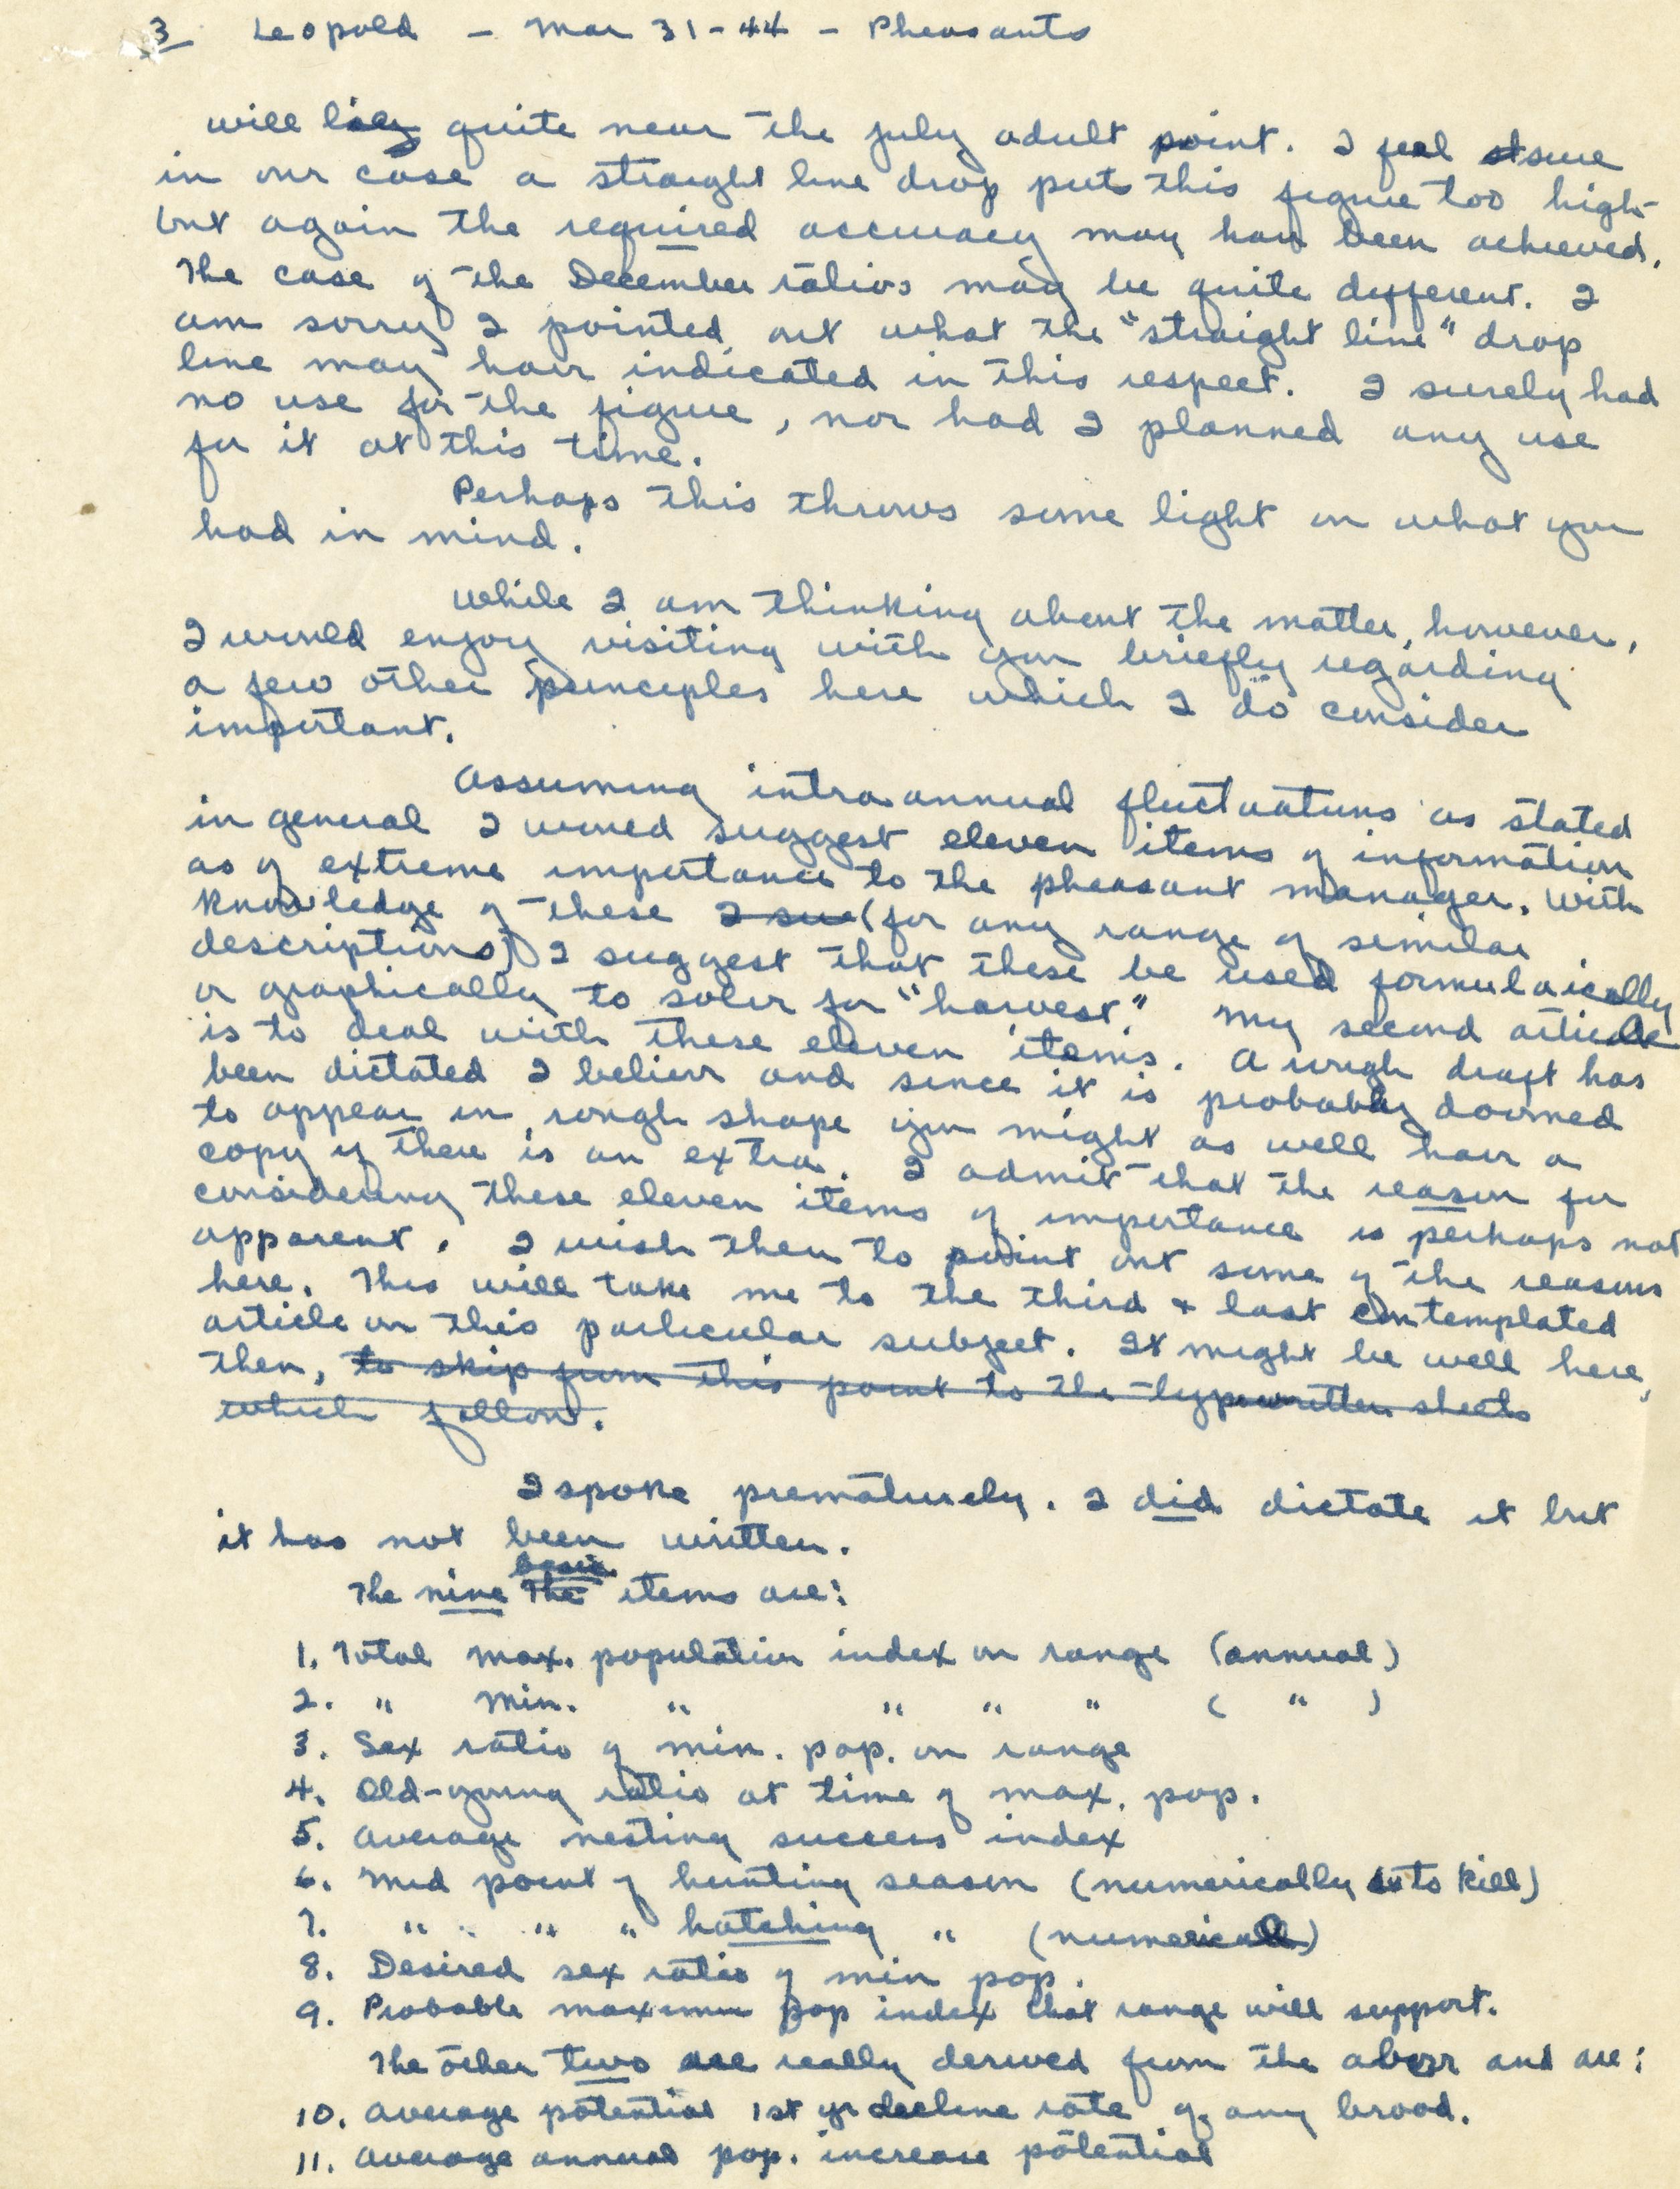 3 Leopold - Mar 31-44 - Pheasants
will lie quite near the July adult point. I feel sure
in our case a straight line drop puts this figure too high-
but again the required accuracy may have been achieved.
The case of the December ratios may be quite different. I
am sorry I pointed out what the "straight line" drop
line may have indicated in this respect. I surely had
no use for the figure, nor had I planned any use
for it at this time.
Perhaps this throws some light on what you
had in mind.
While I am thinking about the matter, however,
I would enjoy visiting with you briefly regarding
a few other principles here which I do consider
important.
Assuming intra-annual fluctuations as stated
in general I would suggest eleven items of information
as of extreme importance to the pheasant manager. With
knowledge of these I sue (for any range of similar
descriptions) I suggest that these be used formulaically
or graphically to solve for "harvest". My second article
is to deal with these eleven items. A rough draft has
been dictated I believe and since it is probably doomed
to appear in rough shape you might as well have a
copy if there is an extra. I admit that the reason for
considering these eleven items of importance is perhaps not
apparent. I wish then to point out some of the reasons
here. This will take me to the third & last contemplated
article on this particular subject. It might be well here,
then, to skip from this point to the typewritten sheets
which follow.
I spoke prematurely. I did dictate it but
it has not been written.
basic
The nine The items are:
1. Total max. population index on range (annual)
2. " Min. " " " " ( " )
3. Sex ratio of min. pop. on range
4. Old-young ratio at time of max. pop.
5. Average nesting success index
6. Mid point of hunting season (numerically as to kill)
7. " " " hatching " (numerical)
8. Desired sex ratio of min pop.
9. Probable maximum pop index that range will support.
The other two are really derived from the above and are:
10. Average potential 1st yr decline rate of any brood.
11. Average annual pop. increase potential